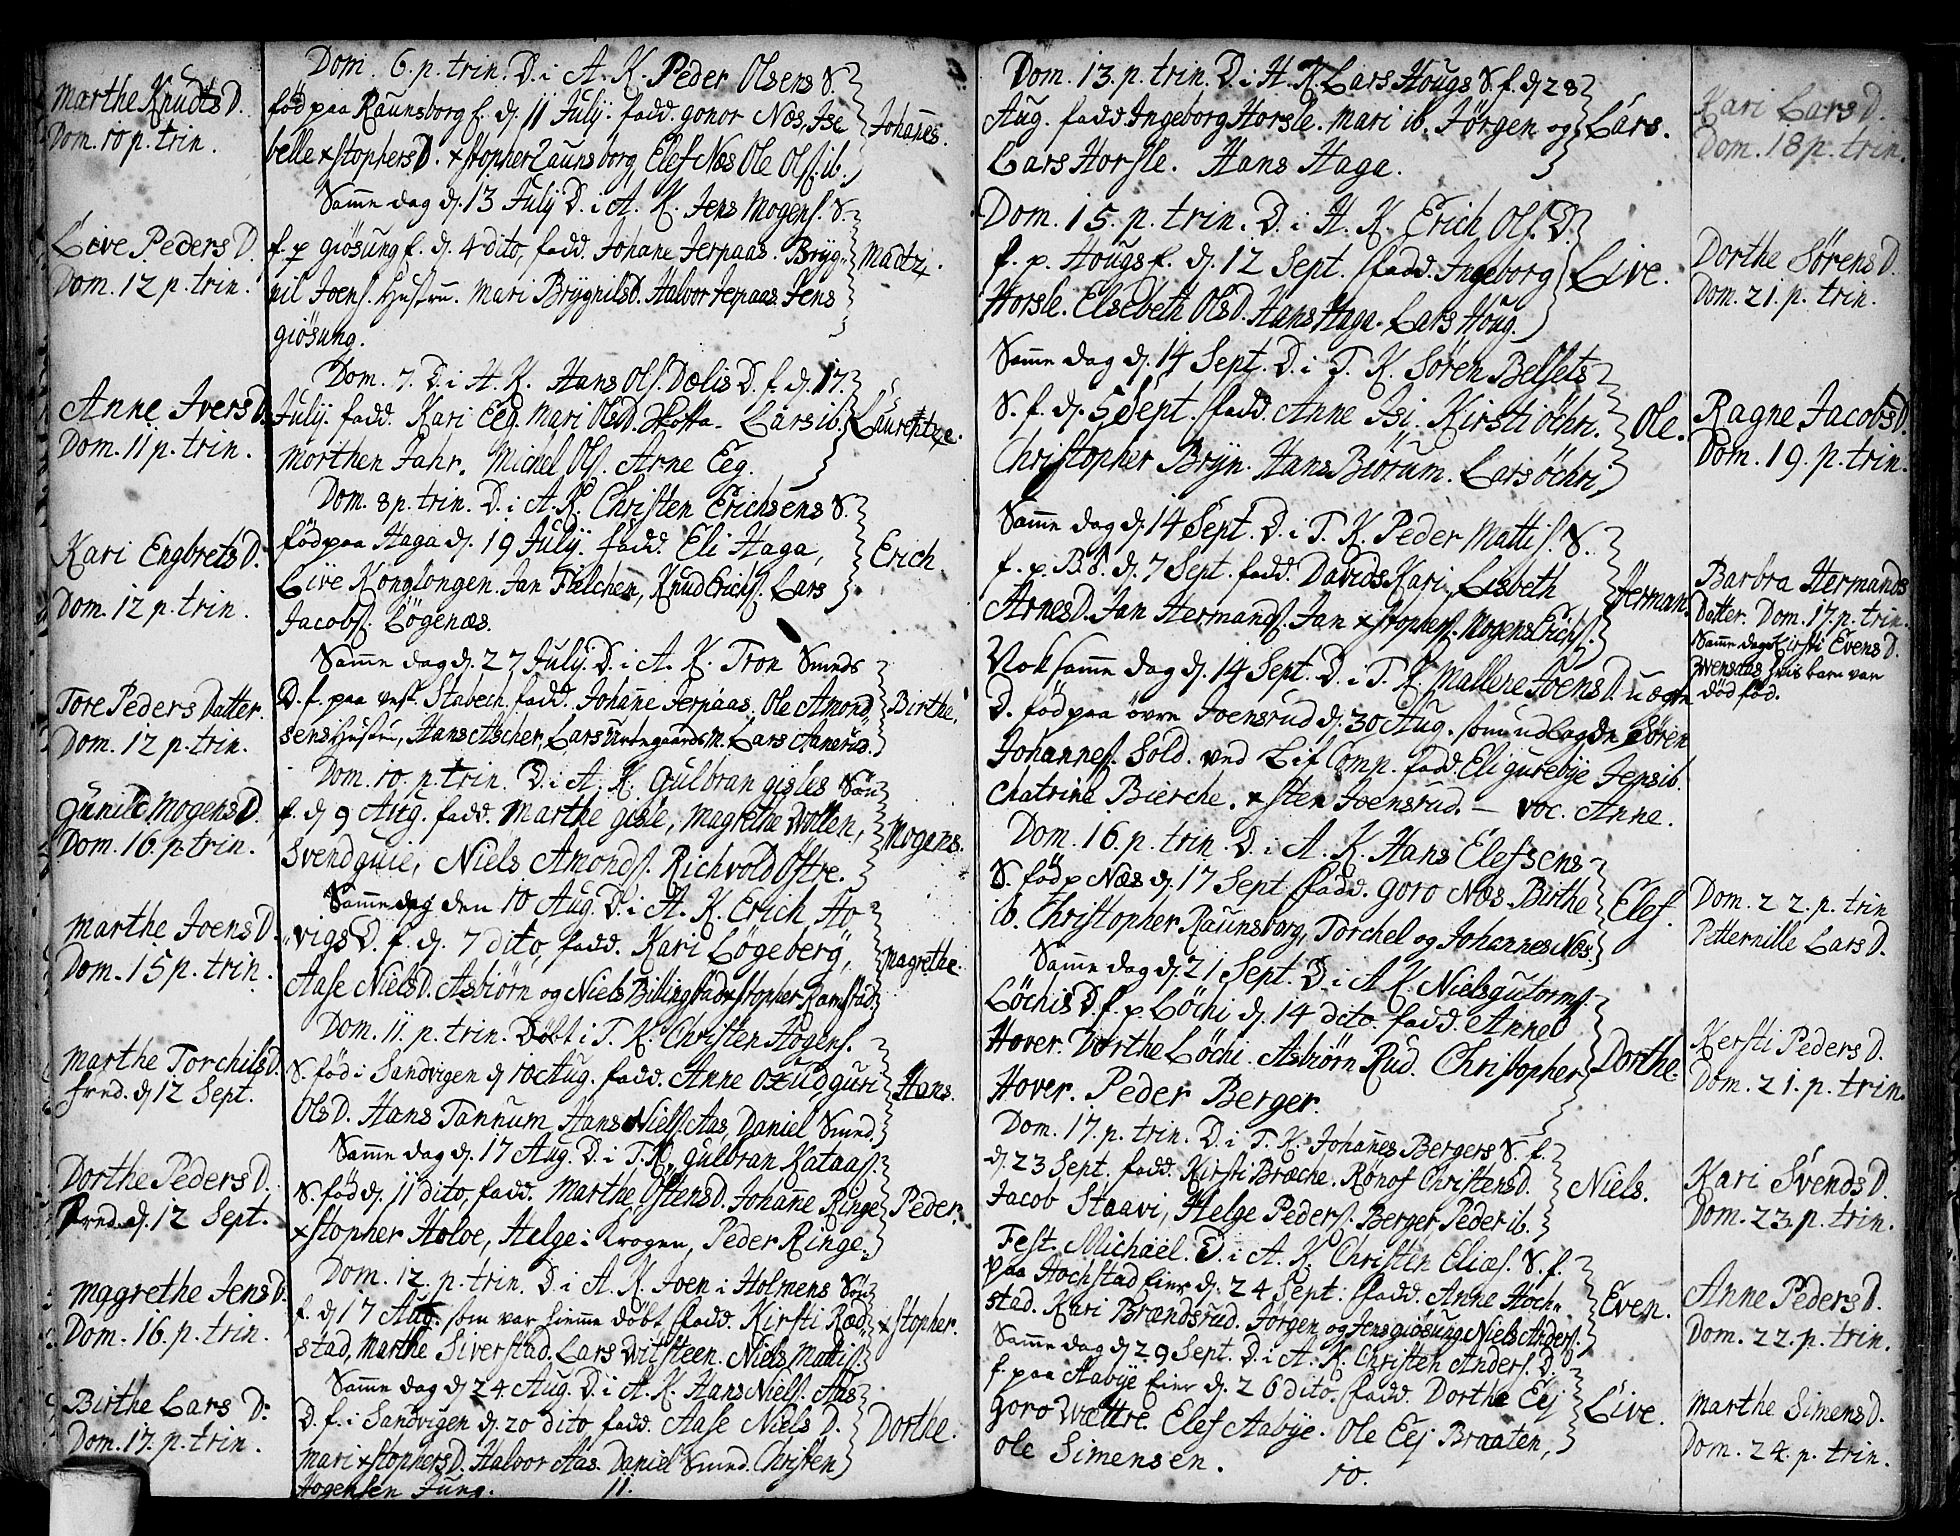 Marthe Knudts D.
Dom. 10 p. trin.
Live Peders D.
Dom. 12 p. trin.
Anne Ivers D.
Dom. 11 p. trin.
Kari Engbrets D.
Dom. 12 p. trin.
Tore Peders Datter.
Dom. 12 p. trin.
Gunild Mogens D.
Dom. 16. p. trin.
Marthe Joens D.
Dom. 15 p. trin.
Marthe Torchils D.
fred. d. 12 Sept.
Dorthe Peders D.
Fred. d. 12 Sept.
Magrethe Jens D.
Dom. 16. p. trin.
Birthe Lars D.
Dom. 17. p. trin.
Dom. 6. p. trin. D. i A. K. Peder Olsens S.
fød paa Raunsborg f. d. 11 July. fadd. Gonor Næs, Ise
belle xstophers D. xstopher Raunsborg, Elef Næs Ole Ols. ib. Johañes.
Sam̃e dag d. 13 July D. i A. K. Jens Mogens. S.
f. p giøsung f. d. 4 dito, fadd. Johañe Jerpaas. Bryg-
nil Joens. Hustru. Mari Brygnils D. Halvor Jerpaas. Jens Madtz.
giøsung.
Dom. 7. D. i A. K. Hans Ols. Dælis D. f. d. 17.
July. fadd. Kari Eeg. Mari Ols D. Skotta. Lars ib. Laurentze.
Morthen Jahr. Michel Ols. Arne Eeg.
Dom. 8 p. trin. D. i A. K. Christen Erichsens S.
fød paa Haga d. 19 July. fadd. Eli Haga,
Live Konglongen. Jan Fælchen, Knud Erichs. Lars Erich
Jacobs. Løgenæs.
Sam̃e dag d. 27 July. D. i A. K. Tron Smeds
D. f. paa vest. Stabech. fadd. Johañe Jerpaas. Ole Amond
sens Hustru, Hans Ascher, Lars Urtegaards M. Lars Añerød. Birthe.
Dom. 10. p. trin. D. i A. K. Gulbran gisles Søn
f. d 9 Aug. fadd. Marthe gisle, Magrethe Wollen,
Svend guie, Niels Amonds. Richvold Østre. Mogens.
Sam̃e dag den 10 Aug. D. i A. K. Erich Ho-
vigs D. f. d. 7 dito, fadd. Kari Løgeberg,
Aase Niels D. Asbiørn og Niels Billingstad xstopher Ramstad Magrethe.
Dom. 11. p. trin. Døbt i T. K. Christen Hogens.
S. fød i Sandvigen d 10 Aug. fadd. Anne guri
Ols D. Hans Tannum, Hans Niels. Aas, Daniel Smed. Hans.
Sam̃e dag d. 17 Aug. D. i T. K. gulbran Kataas.
S. fød d. 11 dito, fadd. Marthe Østens D. Johañe Ringe
xstopher Holoe, Helge i Krogen, Peder Ringe. Peder.
Dom. 12. p. trin. D. i A. K. Joen i Holmens Søn
f. d 17 Aug. som var hiem̃e døbt fadd. Kirsti Ræd
stad, Marthe Siverstad. Lars Witsteen. Niels Mattis. xstopher.
Sam̃e dag d 24 Aug. D. i A. K. Hans Niels. Aas
D. f. i Sandvigen d. 20 dito fadd. Aase Niels D.
Mari xstophers D. Halvor Aas. Daniel Smed. Christen Dorthe.
Hogensen Jung.
11.
Dom. 13. p. trin. D. i H. K. Lars Hougs S. f. d 28
Aug. fadd Ingeborg Horsle. Mari ib. Jørgen og Lars.
Lars Horsle. Hans Haga.
Dom. 15. p. trin. D. i H. K. Erich Ols. D.
f. p. Hougs f. d. 12 Sept. fadd. Ingeborg Live.
Horsle. Elsebeth Ols D. Hans Haga. Lars Houg.
Sam̃e dag d. 14 Sept. D. i T. K. Søren Belsets
S. f. d. 5 Sept. fadd. Anne Isi. Kirsti Øchri. Ole.
Christopher Bryn. Hans Biørum. Lars Øchri.
Sam̃e dag d. 14 Sept. D. i T. K. Peder Mattis. S.
f. p. B. d. 7 Sept. fadd. Davids Kari, Lisbeth Herman.
Arnes D. Jan Hermands. Jan xstophers. Mogens Erichs.
Nok sam̃e dag d. 14 Sept. D. i T. K. Mallene Joens D. uægte
D. fød paa øvre Joensrud d. 30 Aug. som udlagde Søren
Johannes. Sold. ved Lif Comp. fadd. Eli gurebye Jens ib.
Chatrine Bierche. xsten Joensrud. – voc. Anne.
Dom. 16. p. trin. D. i A. K. Hans Elefsens
S. fød p Næs d. 17 Sept fadd. Goro Næs. Birthe Elef.
ib. Christopher Raunsborg, Torchel og Johannes Næs.
Sam̃e dag d. 21 Sept. D. i A. K. Niels gutorms.
Løchis D. f. p Løchi d. 14 dito. fadd. Anne
Hover. Dorthe Løchi. Asbiørn Rud. Christopher Dorthe.
Hover. Peder Berger.
Dom. 17. p. trin. D. i T. K. Johañes Bergers S. f.
d. 23 Sept. fadd. Kirsti Bræche. Rønof Christens D. Niels.
Jacob Staavi, Helge Peders. Berger Peder ib.
Fest. Michael. D. i A. K. Christen Elias. S. f.
paa Hochstad Eier d. 24 Sept: fadd. Anne Høch-
stad. Kari Brændsrud. Jørgen og Jens giøsung Niels Anders. Even.
Sam̃e dag d 29 Sept. D. i A. K. Christen Anders. D.
f. paa Aabye Eier d. 26 dito. fadd. Dorthe Eej
Goro Wættre. Elef Aabye. Ole Eej Braaten, Live.
Ole Simensen.
10.
Kari Lars D.
Dom. 18 p. trin.
Dorthe Sørens D.
Dom. 21. p. trin.
Ragne Jacobs D.
Dom. 19. p. trin.
Barbra Hermands
Datter. Dom. 17. p. trin.
Sam̃e dag Kirsti Evens D.
hvis barn var
død fød.
Dom. 22. p. trin
Petternille Lars D.
Kersti Peders D.
Dom. 21. p. trin.
Kari Svends D.
Dom. 23. p. trin.
Anne Peders D.
Dom. 22. p. trin.
Marthe Simens D.
Dom. 24. p. trin.